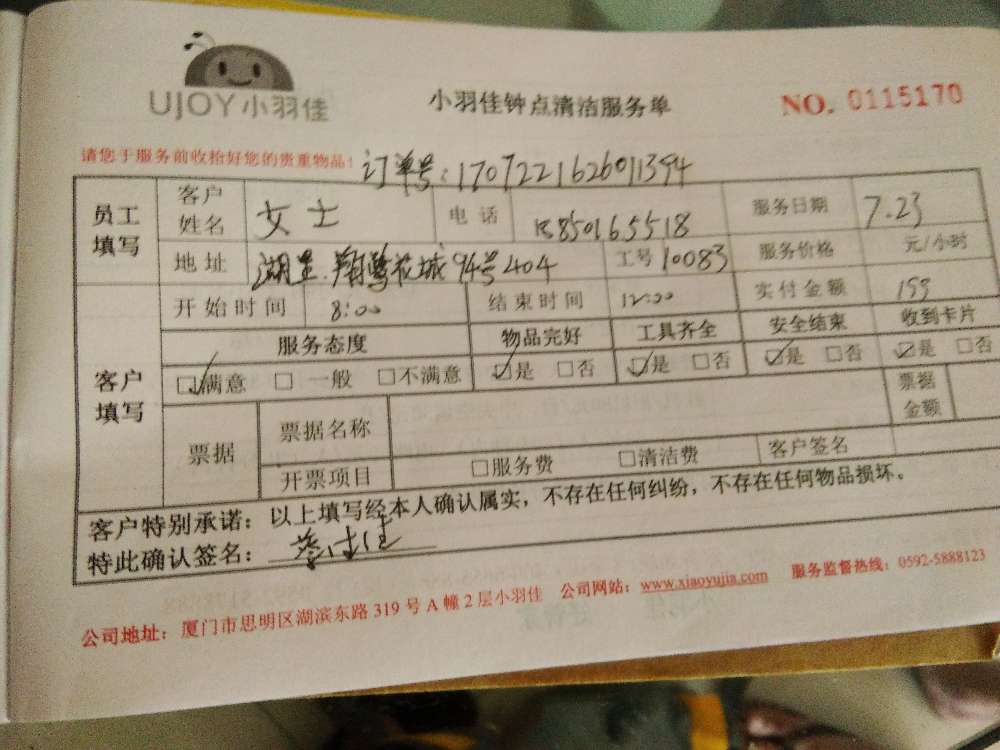 UJOY小羽佳
小羽佳钟点清洁服务单
NO. 0115170
请您于服务前收检好您的贵重物品!
订单号:1707221626011394
员工填写 客户姓名 女士 电话 15850165518 服务日期 7.23
地址 湖里.翔鹭花城94号404 工号 10083 服务价格 元/小时
开始时间 8:00 结束时间 12:00 实付金额 159
客户填写 服务态度 物品完好 工具齐全 安全结束 收到卡片
☑满意 □一般 □不满意 ☑是 □否 ☑是 □否 ☑是 □否 ☑是 □否
票据 票据名称 票据金额
开票项目 □服务费 □清洁费 客户签名
客户特别承诺:以上填写经本人确认属实,不存在任何纠纷,不存在任何物品损坏。
特此确认签名:
公司地址:厦门市思明区湖滨东路 319 号 A 幢 2 层小羽佳 公司网站:www.xiaoyujia.com 服务监督热线:0592-5888123